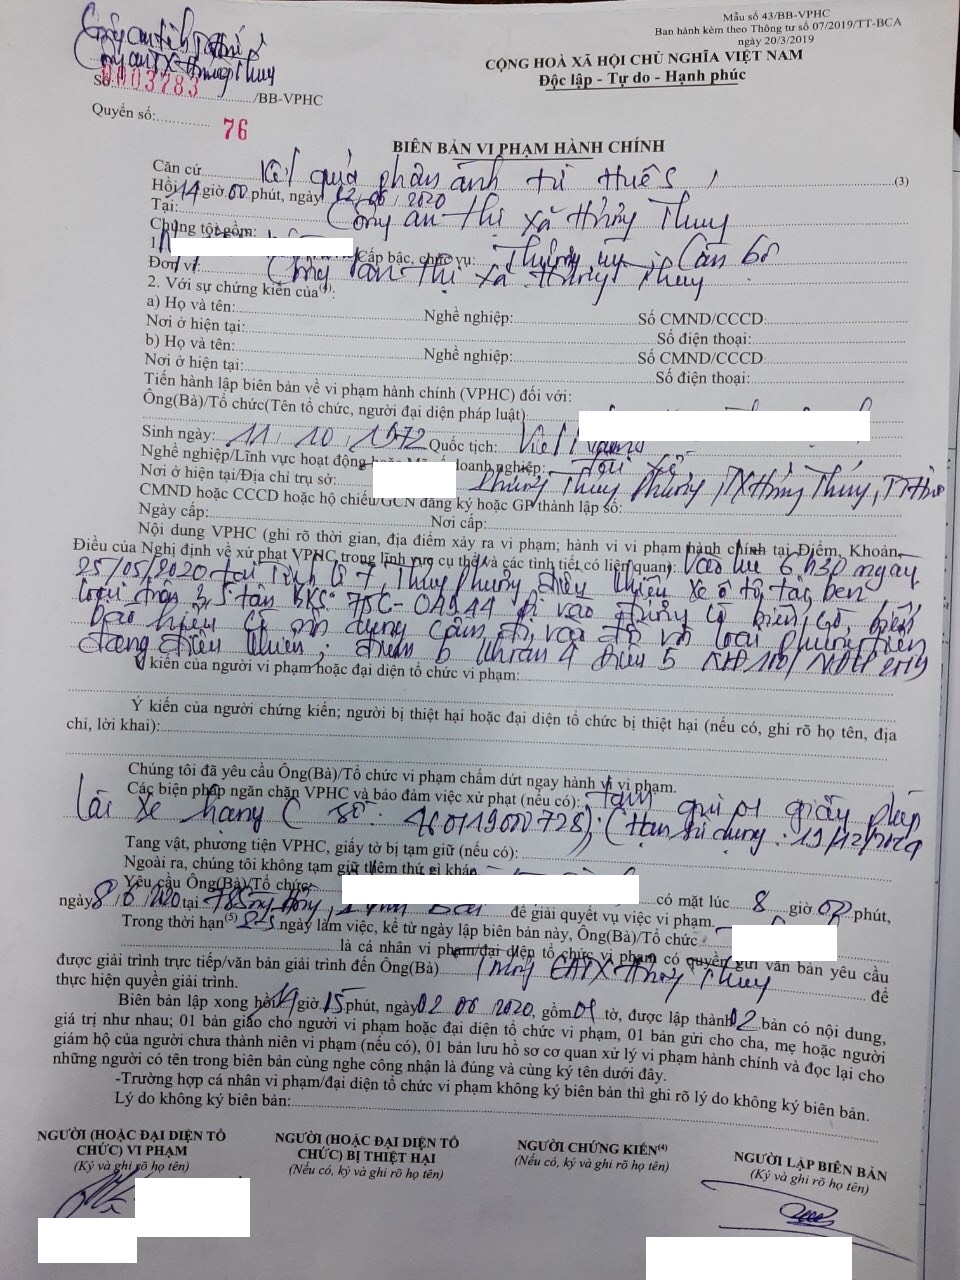 Mẫu số 43/BB-VPHC
Ban hành kèm theo Thông tư số 07/2019/TT-BCA
ngày 20/3/2019
CỘNG HOÀ XÃ HỘI CHỦ NGHĨA VIỆT NAM
Độc lập - Tự do - Hạnh phúc
Công an tỉnh
Công an TX Hương Thuỷ
Số: 0003783 /BB-VPHC
Quyển số: 76
BIÊN BẢN VI PHẠM HÀNH CHÍNH
Căn cứ Kết quả phản ánh từ Huế S, (3)
Hồi 14 giờ 00 phút, ngày 02/06/2020
Tại: Công an thị xã Hương Thuỷ
Chúng tôi gồm:
1. Cấp bậc, chức vụ: Thượng úy Cán bộ
Đơn vị: Công an thị xã Hương Thuỷ
2. Với sự chứng kiến của(4):
a) Họ và tên: Nghề nghiệp: Số CMND/CCCD:
Nơi ở hiện tại: Số điện thoại:
b) Họ và tên: Nghề nghiệp: Số CMND/CCCD:
Nơi ở hiện tại: Số điện thoại:
Tiến hành lập biên bản về vi phạm hành chính (VPHC) đối với:
Ông(Bà)/Tổ chức(Tên tổ chức, người đại diện pháp luật):
Sinh ngày: 11/10/1972 Quốc tịch: Việt Nam
Nghề nghiệp/Lĩnh vực hoạt động hoặc Mã số doanh nghiệp: Tài xế
Nơi ở hiện tại/Địa chỉ trụ sở: Phường Thủy Phương, TX Hương Thủy, TT Huế
CMND hoặc CCCD hoặc hộ chiếu/GCN đăng ký hoặc GP thành lập số:
Ngày cấp: Nơi cấp:
Nội dung VPHC (ghi rõ thời gian, địa điểm xảy ra vi phạm; hành vi vi phạm hành chính tại Điểm, Khoản,
Điều của Nghị định về xử phạt VPHC trong lĩnh vực cụ thể và các tình tiết có liên quan): Vào lúc 6h30 ngày
25/05/2020 tại Tỉnh lộ 7, Thủy Phương điều khiển xe ô tô tải ben
loại trên 3,5 tấn BKS: 75C-04944 đi vào đường có biển
báo hiệu có nội dung cấm đi vào đối với loại phương tiện
đang điều khiển; điểm b khoản 4 điều 5 NĐ 100/NĐCP 2019
Ý kiến của người vi phạm hoặc đại diện tổ chức vi phạm:
Ý kiến của người chứng kiến; người bị thiệt hại hoặc đại diện tổ chức bị thiệt hại (nếu có, ghi rõ họ tên, địa
chỉ, lời khai):
Chúng tôi đã yêu cầu Ông(Bà)/Tổ chức vi phạm chấm dứt ngay hành vi vi phạm.
Các biện pháp ngăn chặn VPHC và bảo đảm việc xử phạt (nếu có): Tạm giữ 01 giấy phép
lái xe hạng C số: 460119000728; (Hạn sử dụng: 19/12/2024
Tang vật, phương tiện VPHC, giấy tờ bị tạm giữ (nếu có):
Ngoài ra, chúng tôi không tạm giữ thêm thứ gì khác
Yêu cầu Ông(Bà)/Tổ chức: có mặt lúc 8 giờ 00 phút,
ngày 8/6/2020 tại để giải quyết vụ việc vi phạm.
Trong thời hạn(5) ngày làm việc, kể từ ngày lập biên bản này, Ông(Bà)/Tổ chức
là cá nhân vi phạm/đại diện tổ chức vi phạm có quyền gửi văn bản yêu cầu
được giải trình trực tiếp/văn bản giải trình đến Ông(Bà) Trưởng CATX Hương Thuỷ để
thực hiện quyền giải trình.
Biên bản lập xong hồi 14 giờ 15 phút, ngày 02/06/2020, gồm 01 tờ, được lập thành 02 bản có nội dung,
giá trị như nhau; 01 bản giao cho người vi phạm hoặc đại diện tổ chức vi phạm, 01 bản gửi cho cha, mẹ hoặc người
giám hộ của người chưa thành niên vi phạm (nếu có), 01 bản lưu hồ sơ cơ quan xử lý vi phạm hành chính và đọc lại cho
những người có tên trong biên bản cùng nghe công nhận là đúng và cùng ký tên dưới đây.
-Trường hợp cá nhân vi phạm/đại diện tổ chức vi phạm không ký biên bản thì ghi rõ lý do không ký biên bản.
Lý do không ký biên bản:
NGƯỜI (HOẶC ĐẠI DIỆN TỔ
CHỨC) VI PHẠM
(Ký và ghi rõ họ tên)
NGƯỜI (HOẶC ĐẠI DIỆN TỔ
CHỨC) BỊ THIỆT HẠI
(Nếu có, ký và ghi rõ họ tên)
NGƯỜI CHỨNG KIẾN(4)
(Nếu có, ký và ghi rõ họ tên)
NGƯỜI LẬP BIÊN BẢN
(Ký và ghi rõ họ tên)